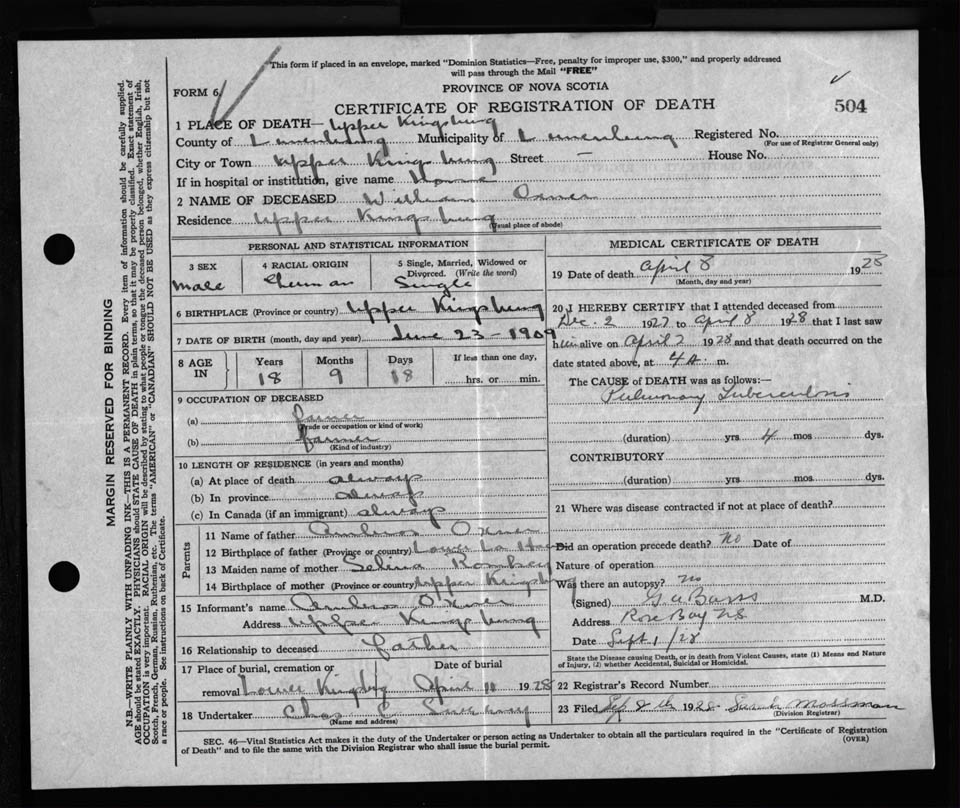 This form if placed in an envelope, marked "Dominion Statistics—Free, penalty for improper use, $300," and properly addressed
will pass through the Mail "FREE"
FORM 6
PROVINCE OF NOVA SCOTIA
CERTIFICATE OF REGISTRATION OF DEATH
504
1 PLACE OF DEATH— Upper Kingsburg
County of Lunenburg Municipality of Lunenburg Registered No.
(For use of Registrar General only)
City or Town Upper Kingsburg Street House No.
If in hospital or institution, give name Home
2 NAME OF DECEASED William Oxner
Residence Upper Kingsburg
(Usual place of abode)
PERSONAL AND STATISTICAL INFORMATION
3 SEX 4 RACIAL ORIGIN 5 Single, Married, Widowed or
Divorced. (Write the word)
Male German Single
6 BIRTHPLACE (Province or country) Upper Kingsburg
7 DATE OF BIRTH (month, day and year) June 23 - 1909
8 AGE IN Years Months Days If less than one day,
18 9 18 hrs. or min.
9 OCCUPATION OF DECEASED
(a)
(Trade or occupation or kind of work)
(b) farmer
(Kind of industry)
10 LENGTH OF RESIDENCE (in years and months)
(a) At place of death always
(b) In province always
(c) In Canada (if an immigrant) always
Parents
11 Name of father Oxner
12 Birthplace of father (Province or country) Lower La Have
13 Maiden name of mother Selina Romkey
14 Birthplace of mother (Province or country) Upper Kingsb
15 Informant's name Oxner
Address Upper Kingsburg
16 Relationship to deceased Father
17 Place of burial, cremation or Date of burial
removal Lower Kingsbg April 10 1928
18 Undertaker Chas E
(Name and address)
MEDICAL CERTIFICATE OF DEATH
19 Date of death April 8 1928
(Month, day and year)
20 I HEREBY CERTIFY that I attended deceased from
Dec. 2 1927 to April 8 1928 that I last saw
him alive on April 2 1928 and that death occurred on the
date stated above, at 4 A. m.
The CAUSE of DEATH was as follows:—
Pulmonary Tuberculosis
(duration) yrs 4 mos dys.
CONTRIBUTORY
(duration) yrs. mos dys.
21 Where was disease contracted if not at place of death?
Did an operation precede death? No Date of
Nature of operation
Was there an autopsy? No
(Signed) M.D.
Address Rose Bay NS
Date Sept 1/28
State the Disease causing Death, or in death from Violent Causes, state (1) Means and Nature
of Injury, (2) whether Accidental, Suicidal or Homicidal.
22 Registrar's Record Number
23 Filed 1928 Sarah Mossman
(Division Registrar)
SEC. 46—Vital Statistics Act makes it the duty of the Undertaker or person acting as Undertaker to obtain all the particulars required in the "Certificate of Registration
of Death" and to file the same with the Division Registrar who shall issue the burial permit.
(OVER)
MARGIN RESERVED FOR BINDING
N.B.—WRITE PLAINLY WITH UNFADING INK—THIS IS A PERMANENT RECORD. Every item of information should be carefully supplied.
AGE should be stated EXACTLY. PHYSICIANS should STATE CAUSE OF DEATH in plain terms, so that it may be properly classified. Exact statement of
OCCUPATION is very important. RACIAL ORIGIN will be described by stating to what people or tongue the deceased person belonged, whether English, Irish,
Scotch, French, German, Russian, Ruthenian, etc. The terms "AMERICAN" or "CANADIAN" SHOULD NOT BE USED as they express citizenship but not
a race or people. See instructions on back of Certificate.